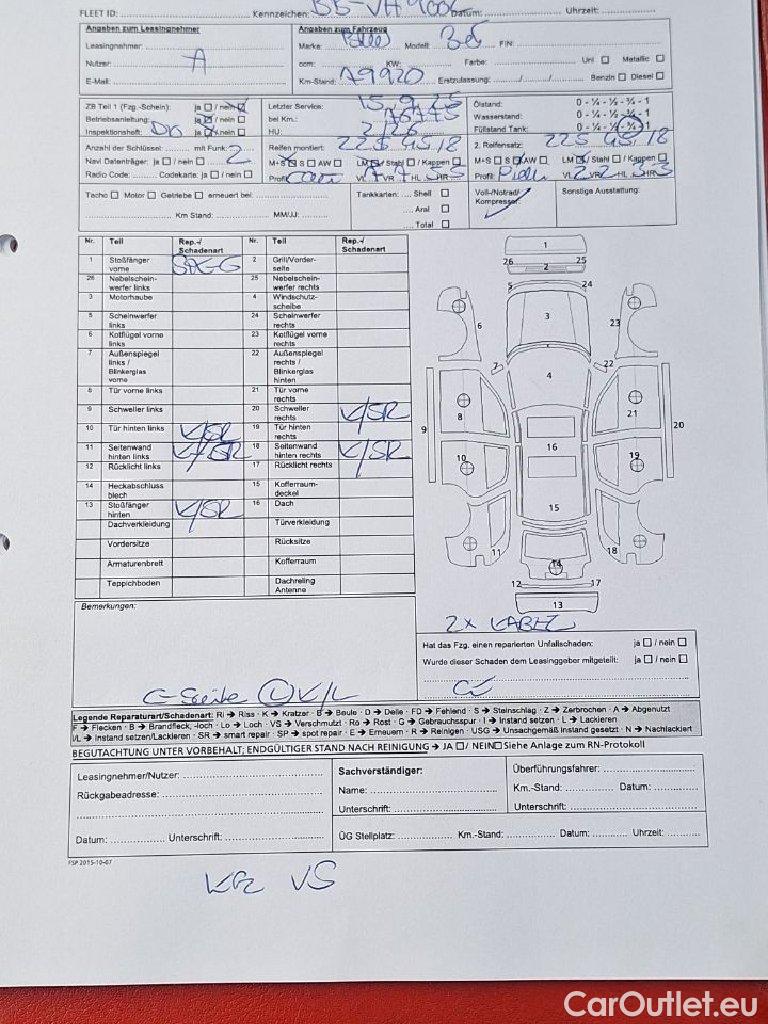 FLEET ID: Kennzeichen: Datum: Uhrzeit:
Angaben zum Leasingnehmer
Leasingnehmer: A
Nutzer:
E-Mail:
Angaben zum Fahrzeug
Marke: Modell: FIN:
ccm: KW: Farbe: Uni □ Metallic □
Km-Stand: 79920 Erstzulassung: / / Benzin □ Diesel □
ZB Teil 1 (Fzg.-Schein): ja □ / nein
Betriebsanleitung: ja □ / nein
Inspektionsheft: ja □ / nein
Letzter Service: 15.9.25
bei Km.: 76775
HU: 2/26
Ölstand: 0 - ¼ - ½ - ¾ - 1
Wasserstand: 0 - ¼ - ½ - ¾ - 1
Füllstand Tank: 0 - ¼ - ½ - ¾ - 1
Anzahl der Schlüssel: mit Funk: 2
Navi Datenträger: ja □ / nein □
Radio Code: Codekarte: ja □ / nein □
Reifen montiert: 225 45 18
M+S □ S □ AW □ LM □ / Stahl □ / Kappen □
Profil VL 7 VR 7 HL 5 HR 5
2. Reifensatz: 225 45 18
M+S □ S □ AW □ LM □ / Stahl □ / Kappen □
Profil: VL 2 VR 2 HL 3 HR 3
Tacho □ Motor □ Getriebe □ erneuert bei:
Km Stand: MM/JJ:
Tankkarten: Shell □
Aral □
Total □
Voll-/Notrad/
Kompressor
Sonstige Ausstattung:
Nr. Teil Rep.-/Schadenart Nr. Teil Rep.-/Schadenart
1 Stoßfänger vorne 2 Grill/Vorderseite
26 Nebelscheinwerfer links 25 Nebelscheinwerfer rechts
3 Motorhaube 4 Windschutzscheibe
5 Scheinwerfer links 24 Scheinwerfer rechts
6 Kotflügel vorne links 23 Kotflügel vorne rechts
7 Außenspiegel links / Blinkerglas vorne 22 Außenspiegel rechts / Blinkerglas hinten
8 Tür vorne links 21 Tür vorne rechts
9 Schweller links 20 Schweller rechts K/SR
10 Tür hinten links K/SR 19 Tür hinten rechts
11 Seitenwand hinten links K/SR 18 Seitenwand hinten rechts K/SR
12 Rücklicht links 17 Rücklicht rechts
14 Heckabschlussblech 15 Kofferraumdeckel
13 Stoßfänger hinten K/SR 16 Dach
Dachverkleidung Türverkleidung
Vordersitze Rücksitze
Armaturenbrett Kofferraum
Teppichboden Dachreling Antenne
1
26 2 25
5 24
3
6 23
7 22
4
8 21
9 20
16
10 19
15
11 18
14
12 17
13
Bemerkungen:
2x KABEL
Hat das Fzg. einen reparierten Unfallschaden: ja □ / nein □
Wurde dieser Schaden dem Leasinggeber mitgeteilt: ja □ / nein □
C-Säule L K/L
Legende Reparaturart/Schadenart: Ri → Riss - K → Kratzer - B → Beule - D → Delle - FD → Fehlend - S → Steinschlag - Z → Zerbrochen - A → Abgenutzt
F → Flecken - B → Brandfleck, -loch - Lo → Loch - VS → Verschmutzt - Ro → Rost - G → Gebrauchsspur - I → Instand setzen - L → Lackieren
I/L → Instand setzen/Lackieren - SR → smart repair - SP → spot repair - E → Erneuern - R → Reinigen - USG → Unsachgemäß instand gesetzt - N → Nachlackiert
BEGUTACHTUNG UNTER VORBEHALT; ENDGÜLTIGER STAND NACH REINIGUNG → JA □/ NEIN□ Siehe Anlage zum RN-Protokoll
Leasingnehmer/Nutzer:
Rückgabeadresse:
Datum: Unterschrift:
Sachverständiger:
Name:
Unterschrift:
Überführungsfahrer:
Km.-Stand: Datum:
Unterschrift:
ÜG Stellplatz: Km.-Stand: Datum: Uhrzeit:
FSP 2015-10-07
Kfz VS
CarOutlet.eu